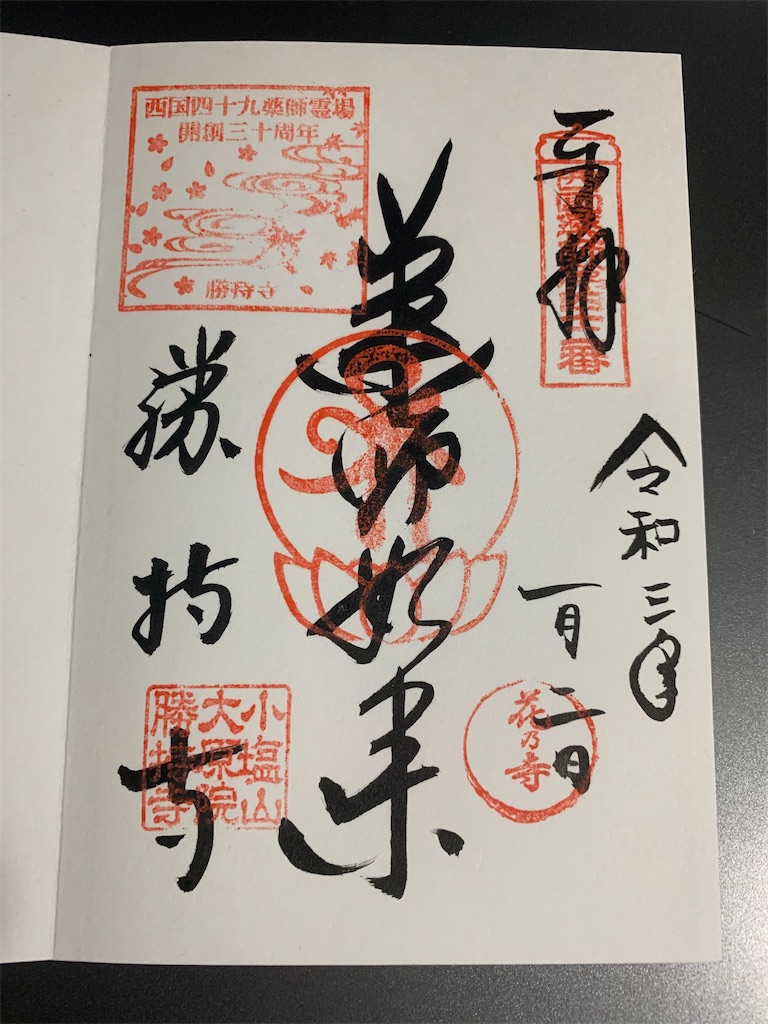 奉拝
令和三年
一月二日
花乃寺
薬師如来
西国四十九薬師霊場
開創三十周年
勝持寺
勝持寺
小塩山
大原院
勝持寺